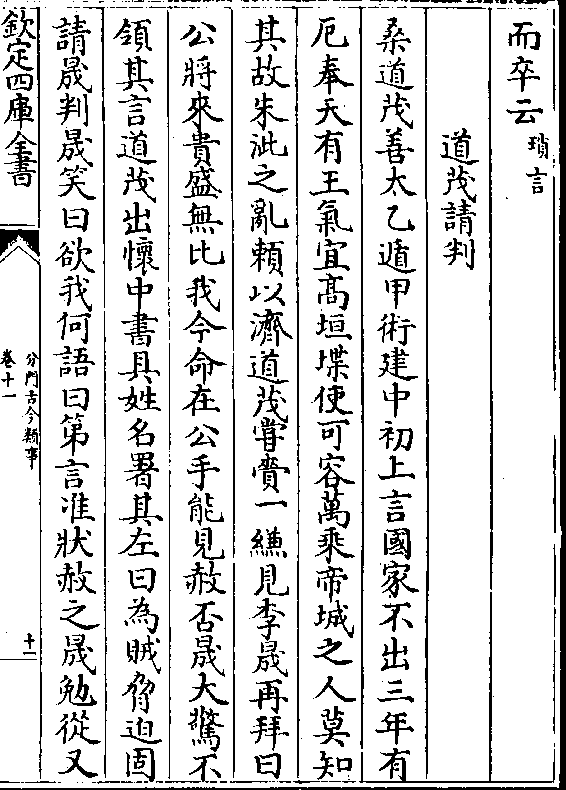 而卒云瑣言
道茂請判
桑道茂善太乙遁甲術建中初上言國家不出三年有
厄奉天有王氣宜髙垣堞使可容萬乘帝城之人莫知
其故朱泚之亂頼以濟道茂甞賫一縑見李晟再拜曰
公將來貴盛無比我今命在公手能見赦否晟大驚不
領其言道茂出懷中書具姓名署其左曰為賊脅迫固
請晟判晟笑曰欲我何語曰第言准狀赦之晟勉從又
欽定四庫全書
分門古今類事
卷十一
十一